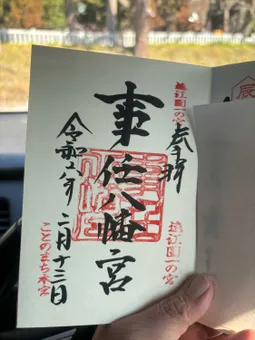 遠江国一の宮
奉拝
事任八幡宮
遠江国一の宮
令和六年
二月十三日
ことのまち本宮
辰